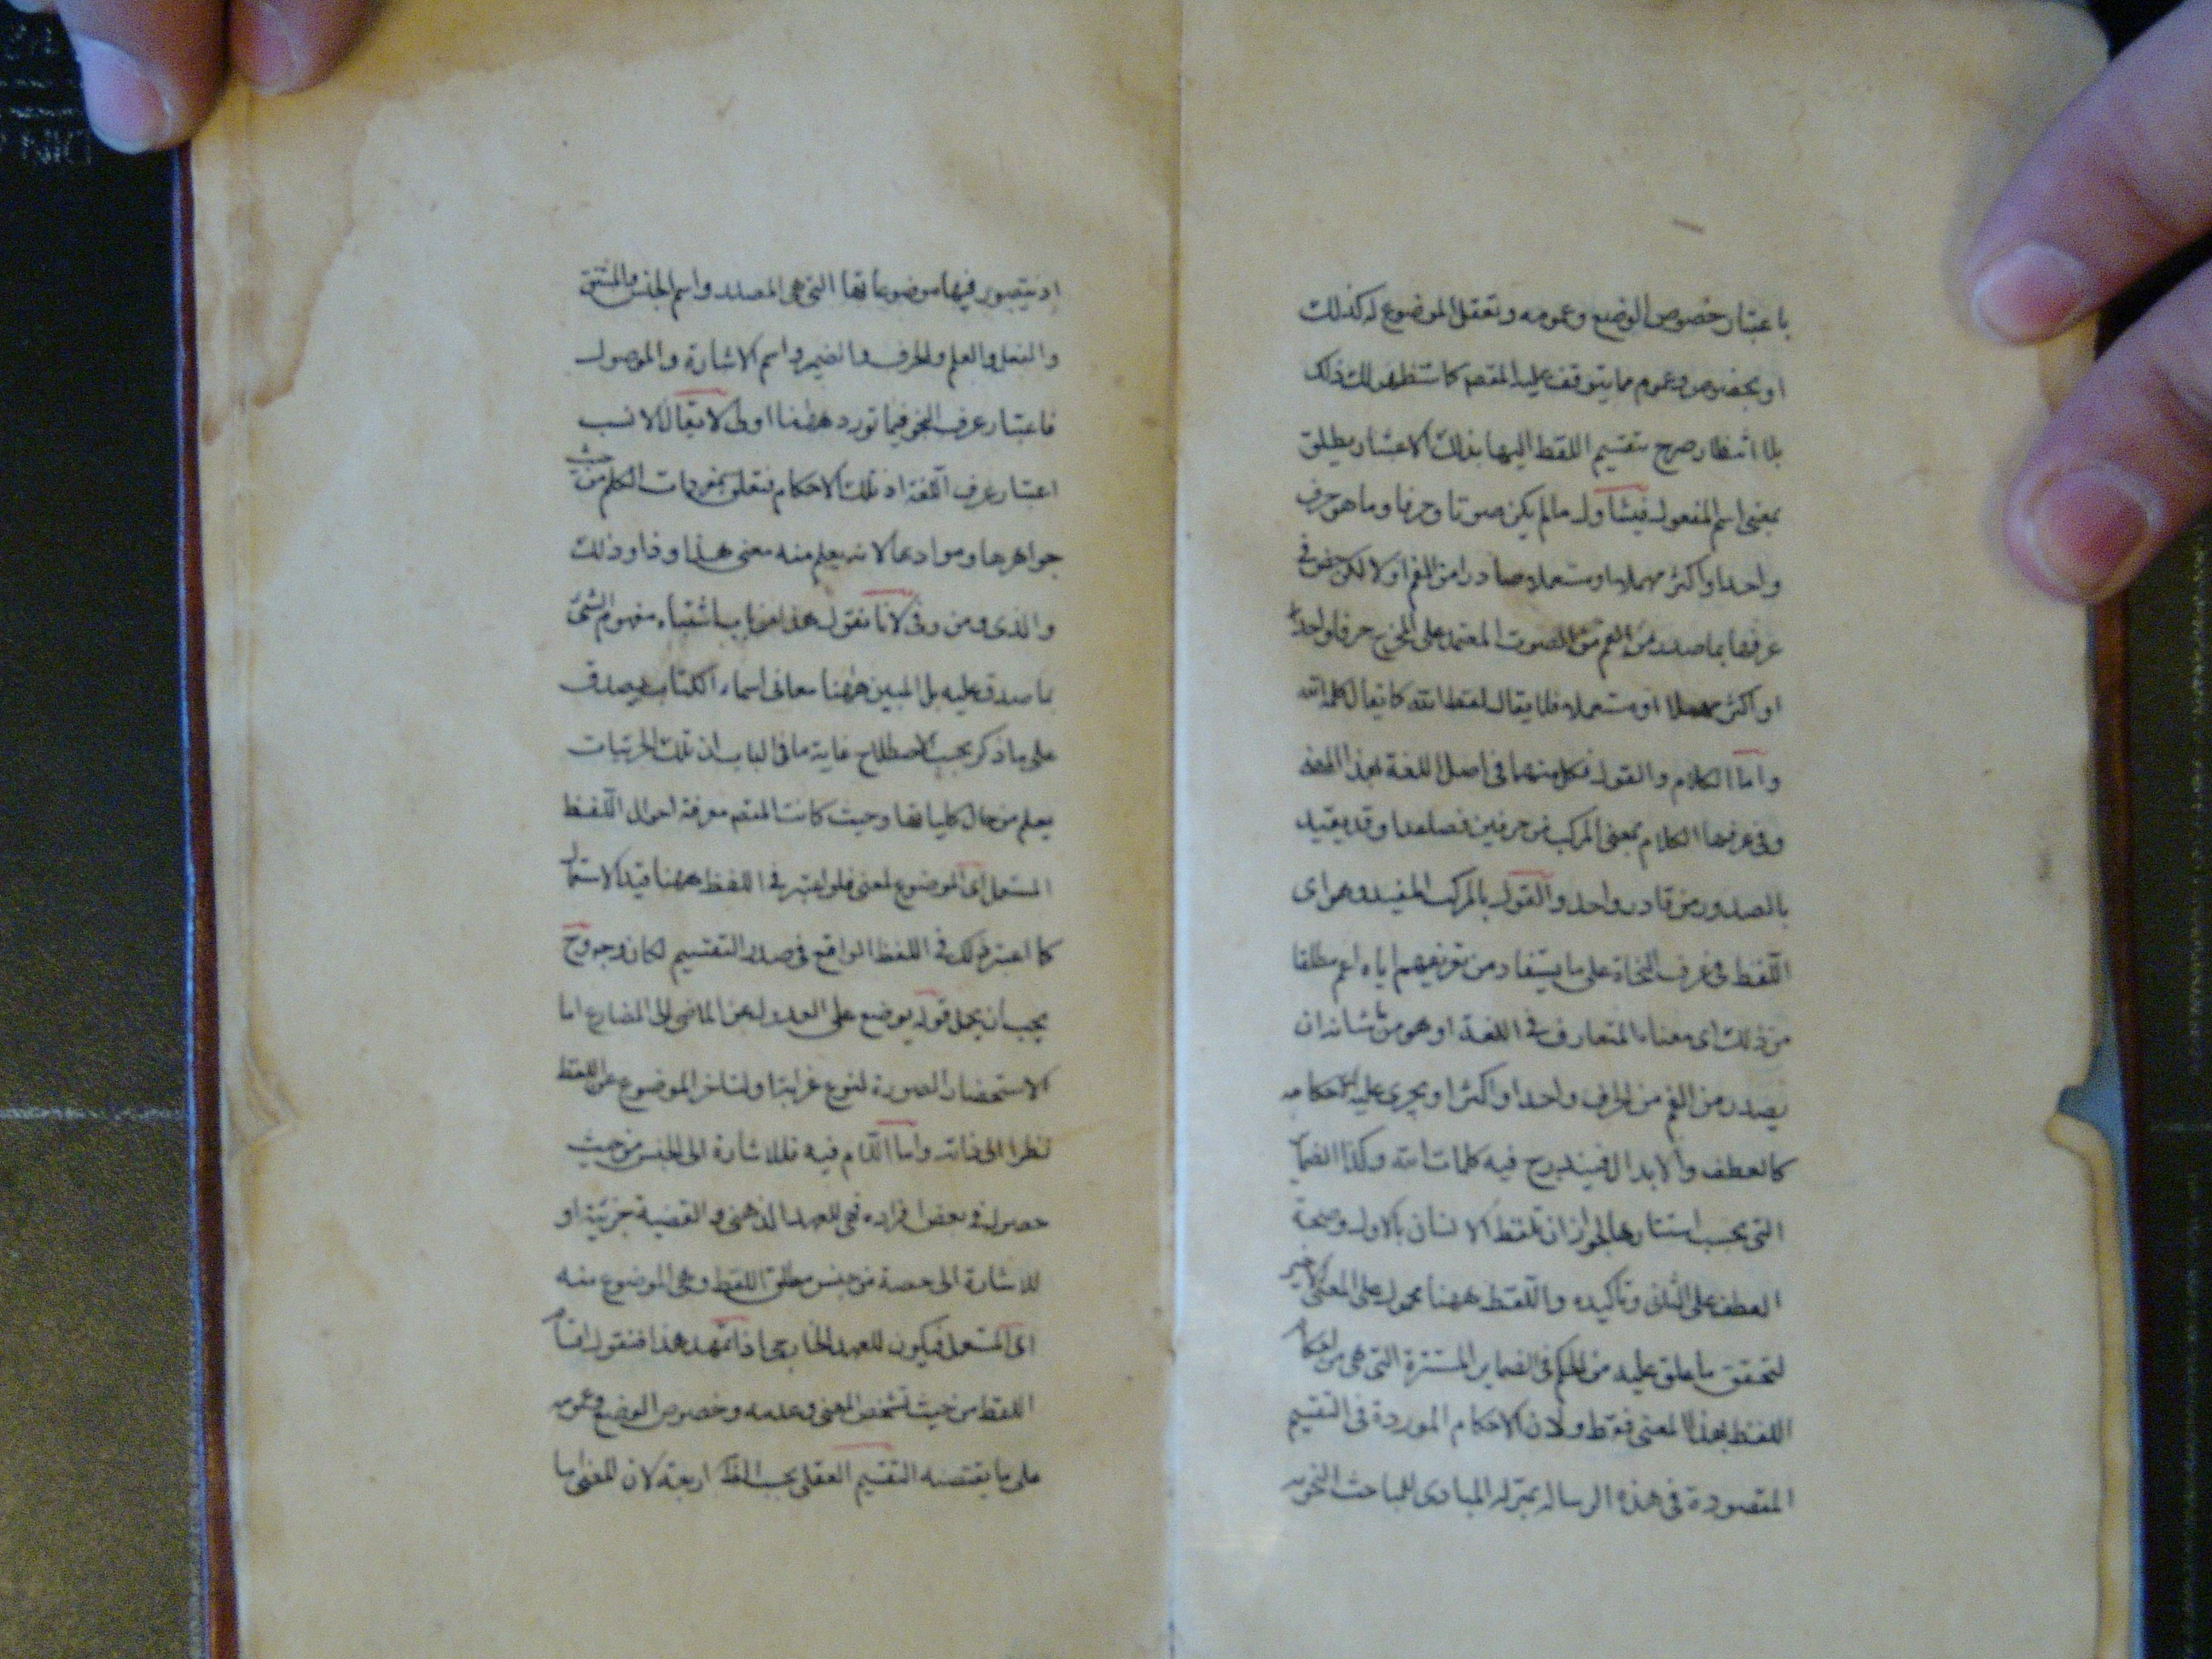 باعتبار خصوص الوضع وعمومه وتعقل الموضوع له كذلك
او بخصوص وعموم مما يتوقف عليه المقصم كما ستظهر لك ذلك
بلا انتظار صرح بتقسيم اللفظ اليها بذلك الاعتبار يطلق
بمعنى اسم المفعول فيتناول ما لم يكن صوتا وحرفا وما هو حرف
واحد او اكثر مهملا او مستعملا صادرا من الفم او لا لكن خص في
عرفها بما صدر من الفم من الصوت المعتمد على المخرج حرفا واحدا
او اكثر مهملا او مستعملا فلا يقال لفظ الله كما يقال كلمة الله
واما الكلام والقول فكل منهما في اصل اللغة بهذا المعنى
وفي عرفها الكلام بمعنى المركب من حرفين فصاعدا وقد يقيد
بالصدور من قادر واحد والقول بالمركب المفيد وهو اى
اللفظ في عرف النحاة على ما يستفاد من تعريفهم اياه اعم مطلقا
من ذلك اى معناه المتعارف في اللغة او هو ما من شانه ان
يصدر من الفم من الحرف واحدا او اكثر او يجرى عليه احكامه
كالعطف والابدال فيندرج فيه كلمات الله وكذا الضمائر
التى يجب استتارها لجواز ان تلفظ الانسان بالاول وصحة
العطف على الثانى وتاكيده واللفظ ههنا محمول على المعنى الاخير
لتحقق ما علق عليه من الحكم في الضماير المستترة التى هى من احكام
اللفظ بهذا المعنى فقط ولان الاحكام الموردة في التقسيم
المقصودة في هذه الرسالة بمنزلة المبادى للمباحث النحوية
اذ يتصور فيها موضوعاتها التى هى المصدر واسم الجنس والمشتق
والفعل والعلم والحرف والضمير واسم الاشارة والموصول
فاعتبار عرف النحو فيما تورد ههنا اولى لا يقال الانسب
اعتبار عرف اللغة اذ تلك الاحكام تتعلق بمفردات الكلم من حيث
جواهرها وموادها لانه يعلم منه معنى هذا وذا وذلك
والذى ومن وفى لانا نقول هذا من باب اشتباه مفهوم الشئ
بما صدق عليه بل المبين ههنا معانى اسماء الكتاب يصدق
على ما ذكر بحسب الاصطلاح غاية ما في الباب ان تلك الجزئيات
يعلم من حال كلياتها وحيث كانت المقصم معرفة احوال اللفظ
المستعمل اى الموضوع لمعنى فلو اعتبر في اللفظ ههنا قيد الاستعمال
كما اعتبر ذلك في اللفظ الواقع في صدر التقسيم لكان وجه وح
يجب ان يحمل قوله يوضع على العدول عن الماضى الى المضارع اما
لاستحضار الصورة لنوع غرابتها ولتاخر الموضوع عن اللفظ
نظرا الى ذاته واما اللام فيه فللاشارة الى الجنس من حيث
حصوله في بعض افراده فهى للعهد الذهنى والقضية جزئية او
للاشارة الى حصة من جنس مطلق اللفظ وهى الموضوع منه
اى المستعمل فيكون للعهد الخارجى اذا تمهد هذا فنقول اقسام
اللفظ من حيث تشخص المعنى وعدمه وخصوص الوضع وعمومه
على ما يقتضيه التقسيم العقلى بحسب اللفظ اربعة لان المعنى اما